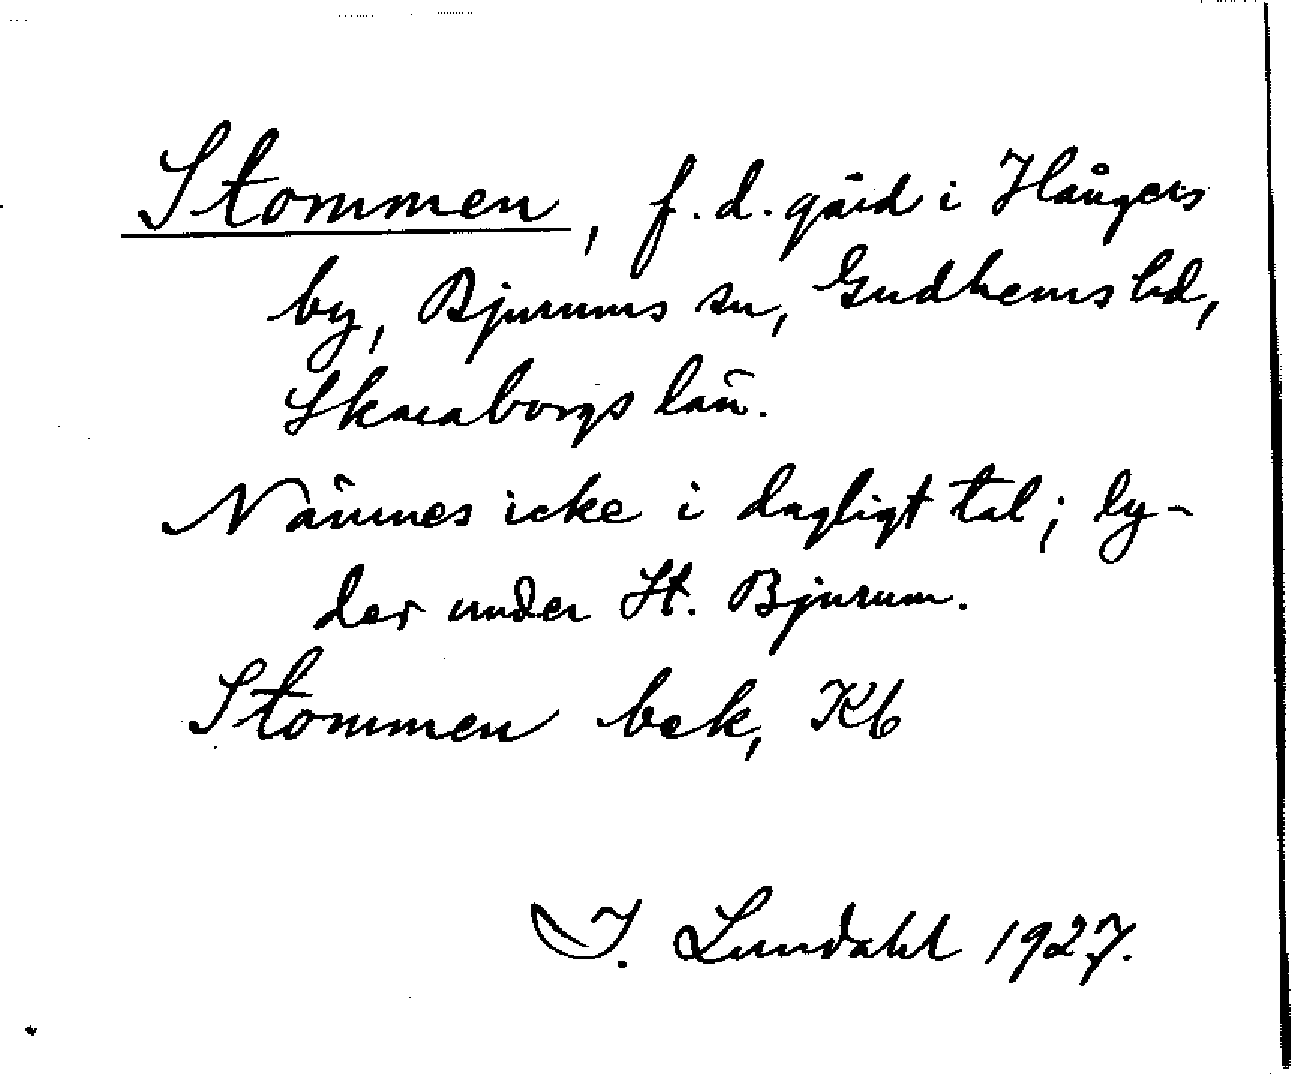 Stommen, f. d. gård i Hångers
by, Bjurums sn, Gudhems hd,
Skaraborgs län.
Nämnes icke i dagligt tal; ly-
der under St. Bjurum.
Stommen bek, Kb
I. Lundahl 1927.